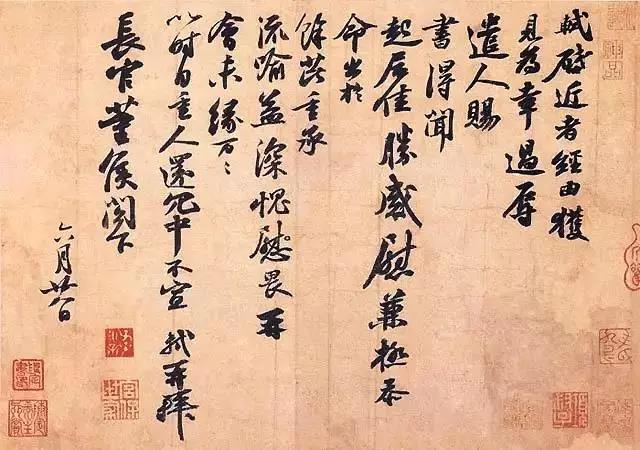 軾啟近者經由獲
見為幸過辱
遣人賜
書得聞
起居佳勝感慰兼極忝
命出於
餘芘重承
流喻益深愧慰畏再
會未緣万々
以時自重人還冗中不宣 軾再拜
長官董侯閤下
六月廿八日